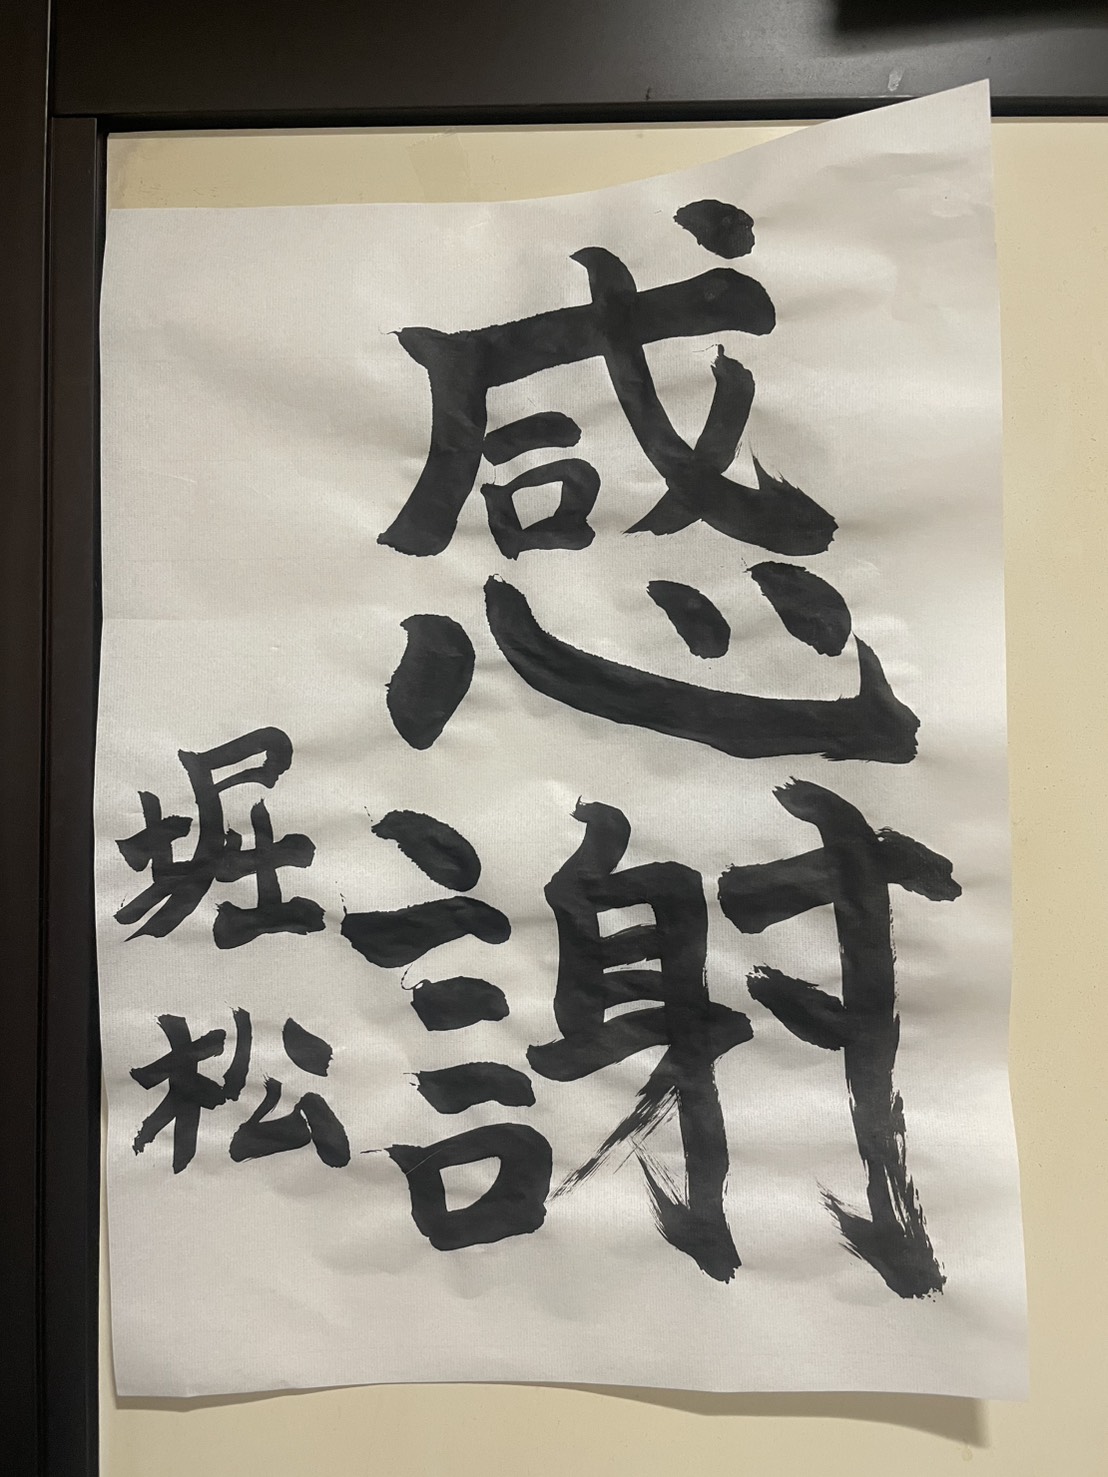 感謝
堀松